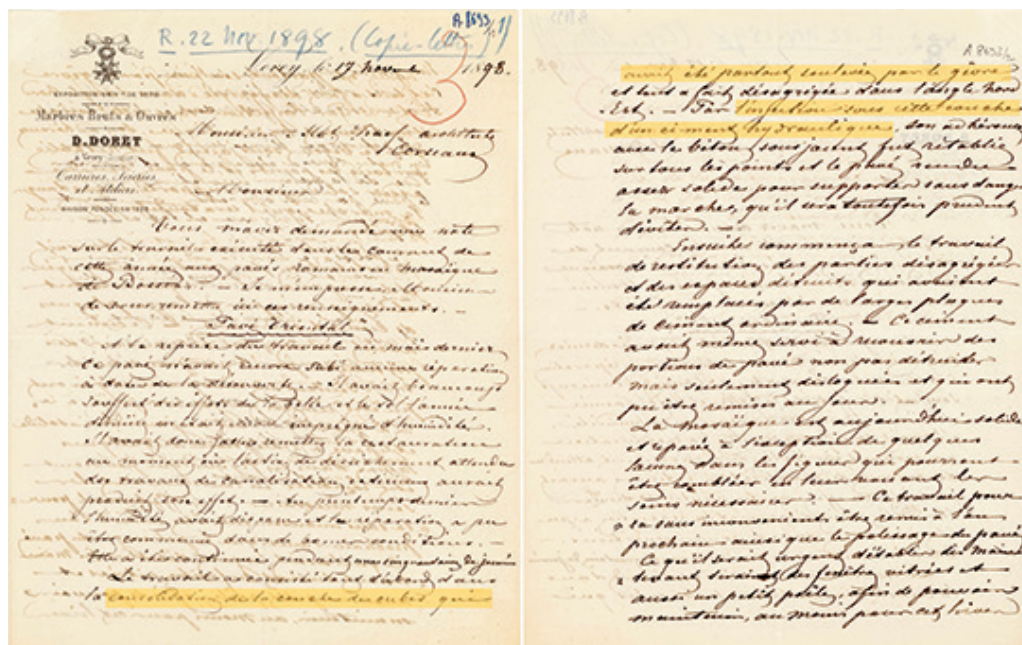 A 8693/1 1)
R. 22 Nov. 1898. (Copie-lettre)
Vevey, le 17 Novembre 1898.
3
Marbres Bruts & Ouvrés
D. DORET
à Vevey
Carrières, Scieries
et Atelier
Monsieur architecte
Monsieur
Vous m'avez demandé une note
sur le travail exécuté dans le courant de
cette année aux pavés romains en mosaïque
de
de vous remettre ici ces renseignements. —
Pavé Oriental
A la reprise des travaux au mois dernier
ce pavé n'avait encore subi aucune réparation
à dater de la découverte. — Il avait beaucoup
souffert des effets du gel et le sol
imprégné d'humidité.
Il avait donc fallu remettre la restauration
au moment où l'action de dessèchement attendue
des travaux de canalisation extérieurs aurait
produit son effet. — Au printemps dernier
l'humidité avait disparu et la réparation a pu
être commencée dans de bonnes conditions. —
Elle a été continuée pendant
Le travail a consisté tout d'abord dans
la consolidation de la couche de cubes qui
avait été partout soulevée par le givre
et tout à fait désagrégée dans l'angle Nord
Est. — Par l'injection sous cette couche
d'un ciment hydraulique, son adhérence
avec le béton sous-jacent fut rétablie
sur tous les points et le pavé rendu
assez solide pour supporter sans danger
la marche, qu'il sera toutefois prudent
d'éviter. —
Ensuite commença le travail
de restitution des parties désagrégées
et des espaces détruits qui avaient
été remplacés par de larges plaques
de ciment ordinaire. — Ce ciment
avait même servi à recouvrir des
portions de pavé non pas détruites
mais seulement disloquées et qui ont
pu être remises au jour.
La mosaïque est aujourd'hui solide
et réparée à l'exception de quelques
lacunes dans les figures qui pourront
être comblées en leur donnant les
soins nécessaires. — Ce travail pourra
sans inconvénient être remis à l'an
prochain ainsi que le polissage du pavé.
Ce qu'il serait urgent d'établir dès maintenant
seraient des fenêtres vitrées et
aussi un petit poêle, afin de pouvoir
maintenir, au moins pour cet hiver